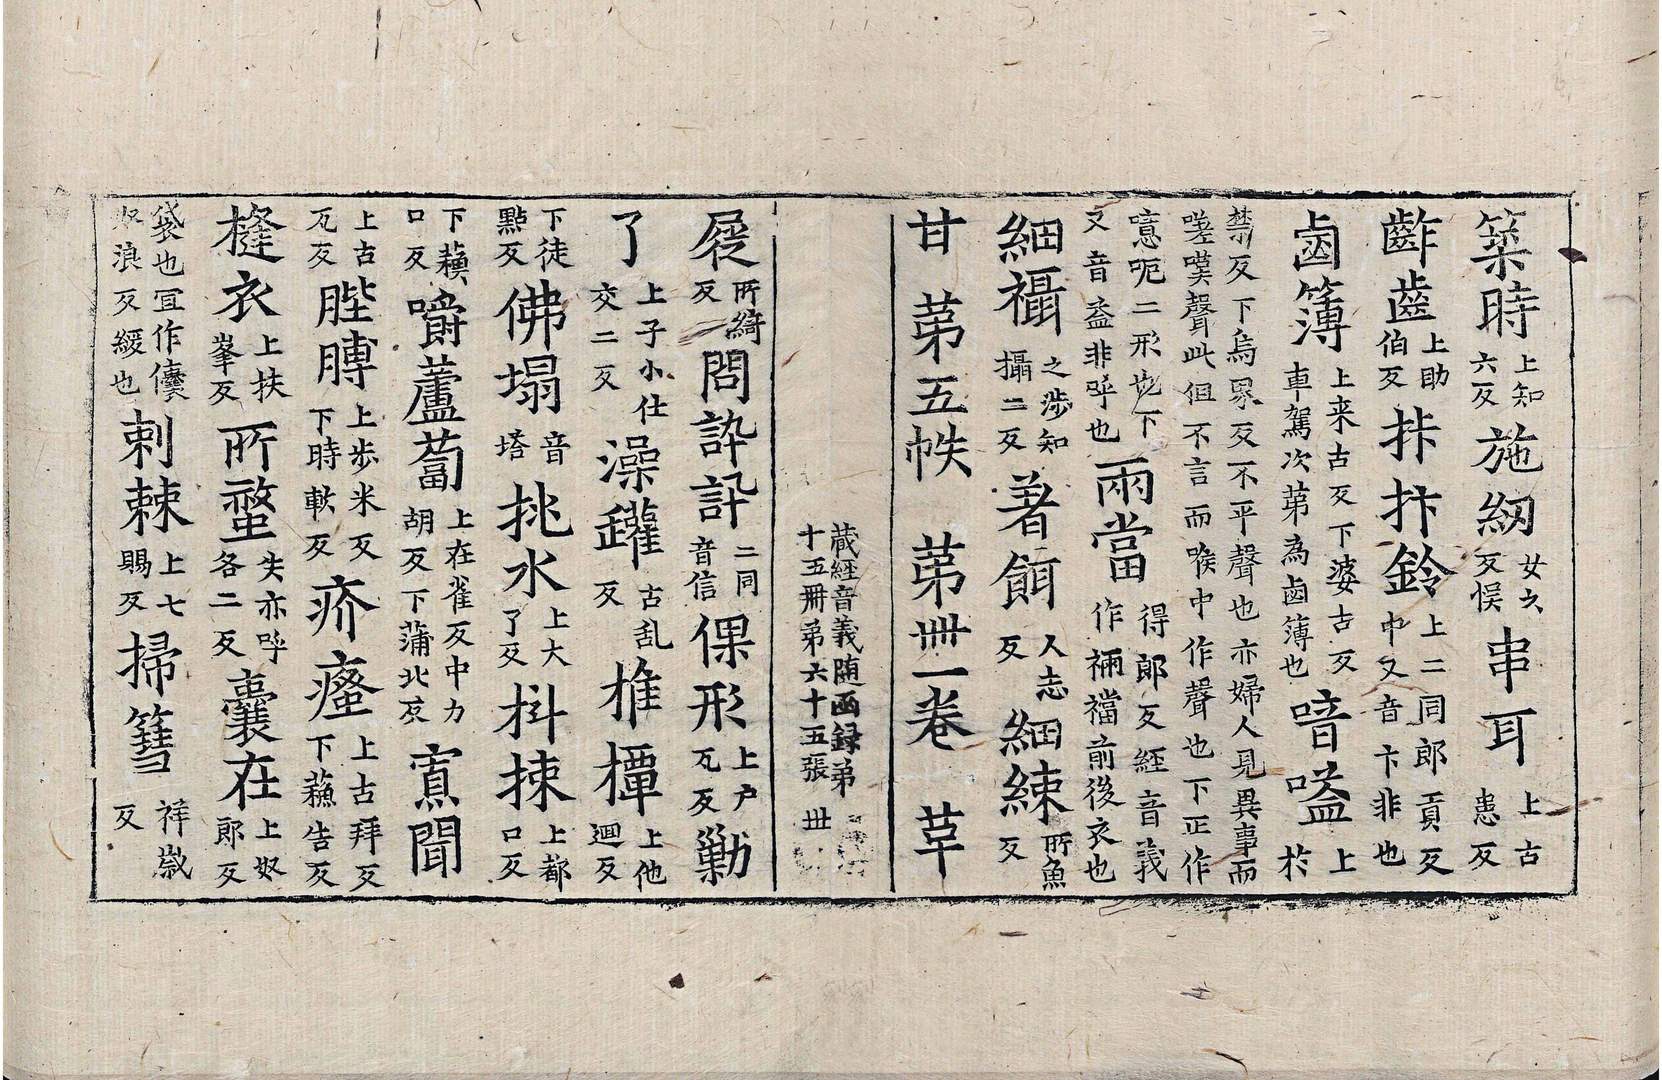 築時上知六反施紉女久反悮串耳上古患反
齚齒上助伯反拤拤鈴上二同郎貢反中又音卞非也
鹵簿上来古反下婆古反車駕次苐為鹵簿也喑嗌上於
禁反下烏界反不平聲也亦婦人見異事而嗟嘆聲此但不言而喉中作聲也下正作
噫呃二形也下又音益非呼也兩當得郎反經音義作裲襠前後衣也
細襵之涉知攝二反著餌人志反細練所魚反
甘苐五帙苐卅一卷草
蔵經音義随函録弟十五冊弟六十五張丗
屣所綺反問訡訙二同音信倮形上户瓦反勦
了上子小仕交二反澡罐古乱反椎橝上他迴反
下徒點反佛塌音塔挑水上大了反抖捒上都口反
下藪口反嚼蘆蔔上在雀反中力胡反下蒲北反賔聞
上古瓦反䏶膞上步米反下時軟反疥瘙上古拜反下蘓告反
槰衣上扶峯反所螫失亦呼各二反囊在上奴郎反
袋也冝作儾奴浪反緩也刺棘上七賜反掃篲祥歲反